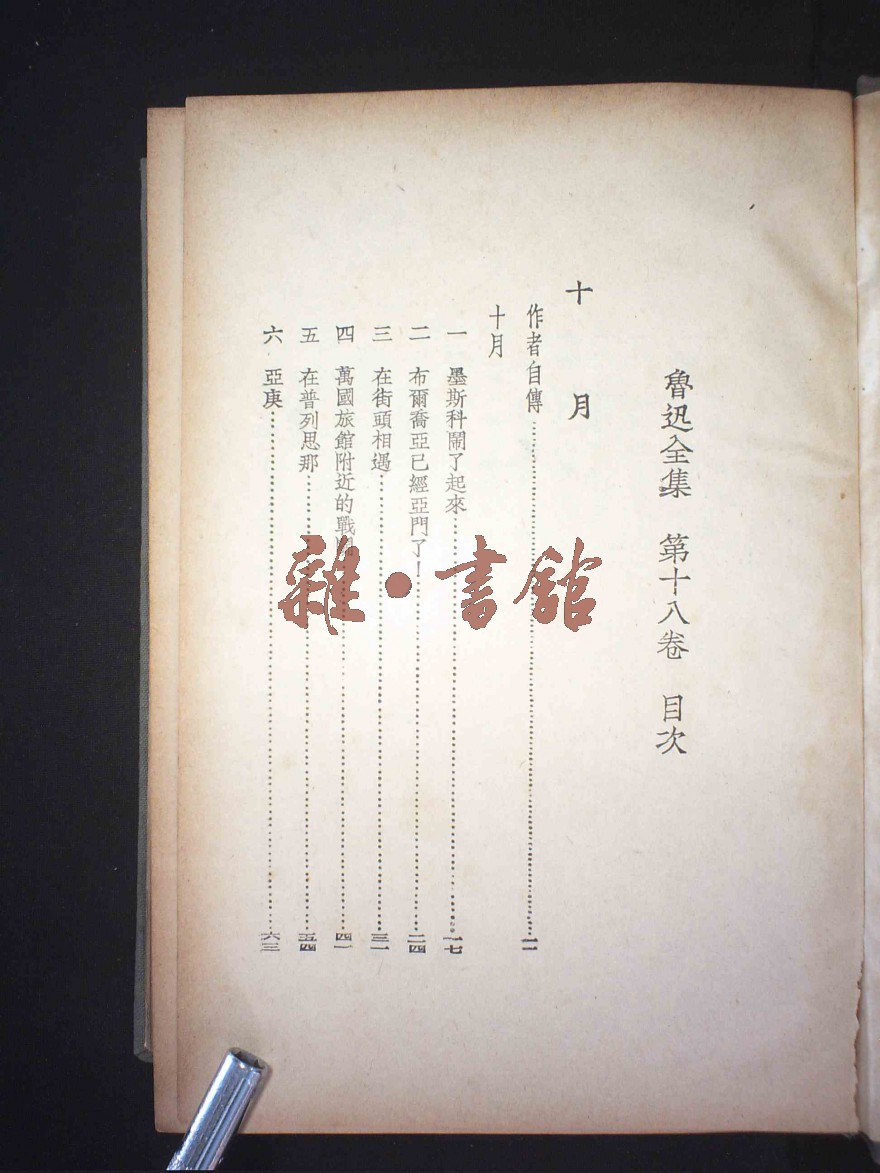 魯迅全集 第十八卷 目次
十月
作者自傳……一一
十月
一 墨斯科鬧了起來……一七
二 布爾喬亞已經亞門了！……二四
三 在街頭相遇……三一
四 萬國旅館附近的戰鬥……四一
五 在普列思那……五四
六 亞庚……六三
雜·書館